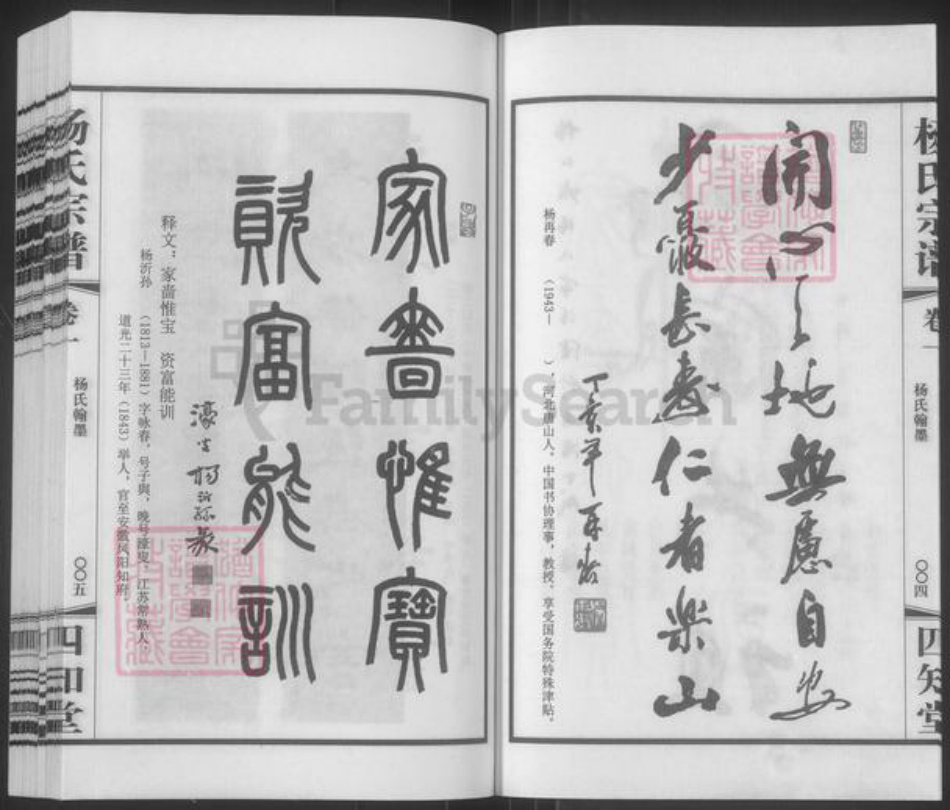 杨氏宗谱
卷一
杨氏翰墨
〇〇四
四知堂
開心天地無慮自安
少〇長壽仁者樂山
丁亥年再春
杨再春 (1943— ),河北唐山人。中国书协理事,教授,享受国务院特殊津贴。
家啬惟寶
資富能訓
濠叟楊沂孫篆
释文:家啬惟宝 资富能训
杨沂孙 (1813—1881)字咏春,号子與,晚号濠叟。江苏常熟人,
道光二十三年(1843)举人,官至安徽凤阳知府。
杨氏宗谱
卷一
杨氏翰墨
〇〇五
四知堂
FamilySearch